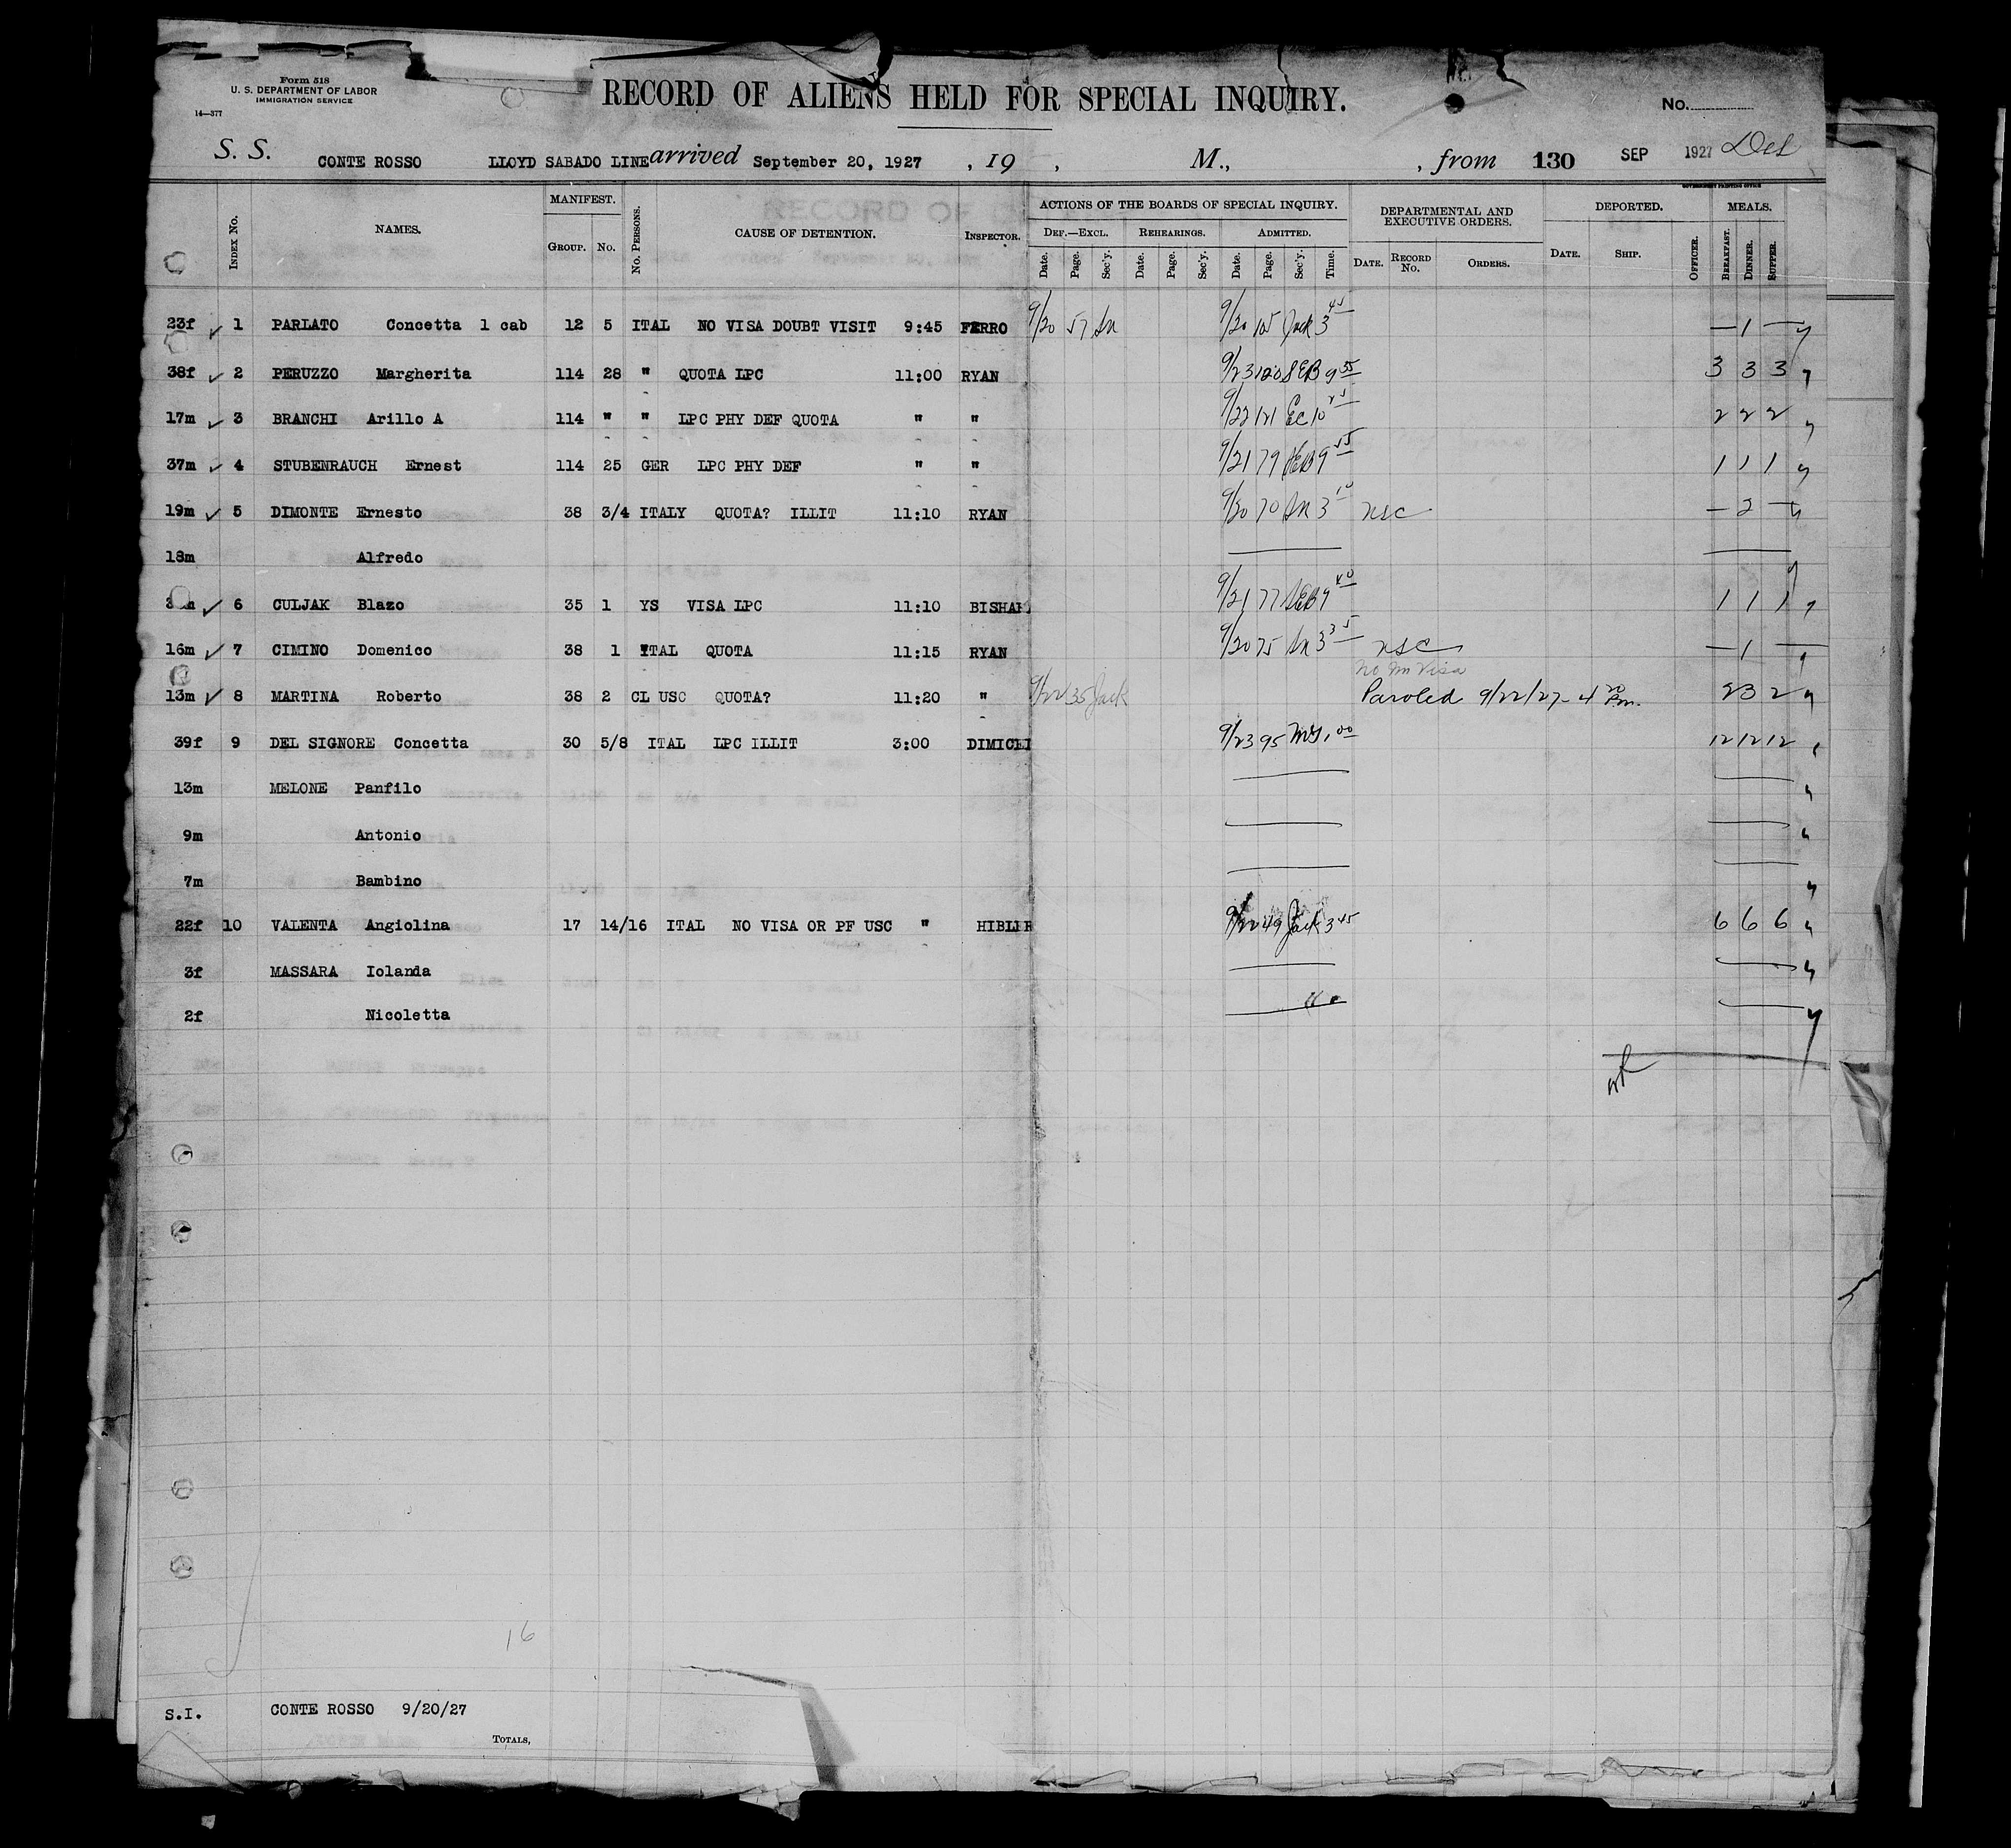 Form 518
U. S. DEPARTMENT OF LABOR
IMMIGRATION SERVICE
14—377
RECORD OF ALIENS HELD FOR SPECIAL INQUIRY.
No.
S. S. CONTE ROSSO LLOYD SABADO LINE arrived September 20, 1927 , 19 , M., , from 130 SEP 1927 Del
GOVERNMENT PRINTING OFFICE
Index No. NAMES. MANIFEST. Group. No. No. Persons. CAUSE OF DETENTION. Inspector. ACTIONS OF THE BOARDS OF SPECIAL INQUIRY. DEPARTMENTAL AND EXECUTIVE ORDERS. DEPORTED. MEALS.
Def.—Excl. Rehearings. Admitted.
Date. Page. Sec'y. Date. Page. Sec'y. Date. Page. Sec'y. Time. Date. Record No. Orders. Date. Ship. Officer. Breakfast. Dinner. Supper.
23f ✓ 1 PARLATO Concetta 1 cab 12 5 ITAL NO VISA DOUBT VISIT 9:45 FERRO 9/20 57 Sn 9/20 105 Jack 3 45 — 1 —
38f ✓ 2 PERUZZO Margherita 114 28 " QUOTA LPC 11:00 RYAN 9/23 120 SEB 9 55 3 3 3
17m ✓ 3 BRANCHI Arillo A 114 " " LPC PHY DEF QUOTA " " 9/22 121 Ec 10 2 2 2
37m ✓ 4 STUBENRAUCH Ernest 114 25 GER LPC PHY DEF " " 9/21 79 SEB 9 55 1 1 1
19m ✓ 5 DIMONTE Ernesto 38 3/4 ITALY QUOTA? ILLIT 11:10 RYAN 9/20 70 Sn 3 10 nsc — 2 —
18m Alfredo
✓ 6 CULJAK Blazo 35 1 YS VISA LPC 11:10 BISHAR 9/21 77 SEB 9 40 1 1 1
16m ✓ 7 CIMINO Domenico 38 1 ITAL QUOTA 11:15 RYAN 9/20 75 Sn 3 35 nsc — 1 —
No Im Visa
13m ✓ 8 MARTINA Roberto 38 2 CL USC QUOTA? 11:20 " 9/22 35 Jack Paroled 9/22/27 - 4 20 Pm. 2 3 2
39f 9 DEL SIGNORE Concetta 30 5/8 ITAL LPC ILLIT 3:00 DIMICEI 9/23 95 1 00 12 12 12
13m MELONE Panfilo
9m Antonio
7m Bambino
22f 10 VALENTA Angiolina 17 14/16 ITAL NO VISA OR PF USC " HIBLER 9/22 49 Jack 3 45 6 6 6
3f MASSARA Iolanda
2f Nicoletta
16
S.I. CONTE ROSSO 9/20/27
Totals,